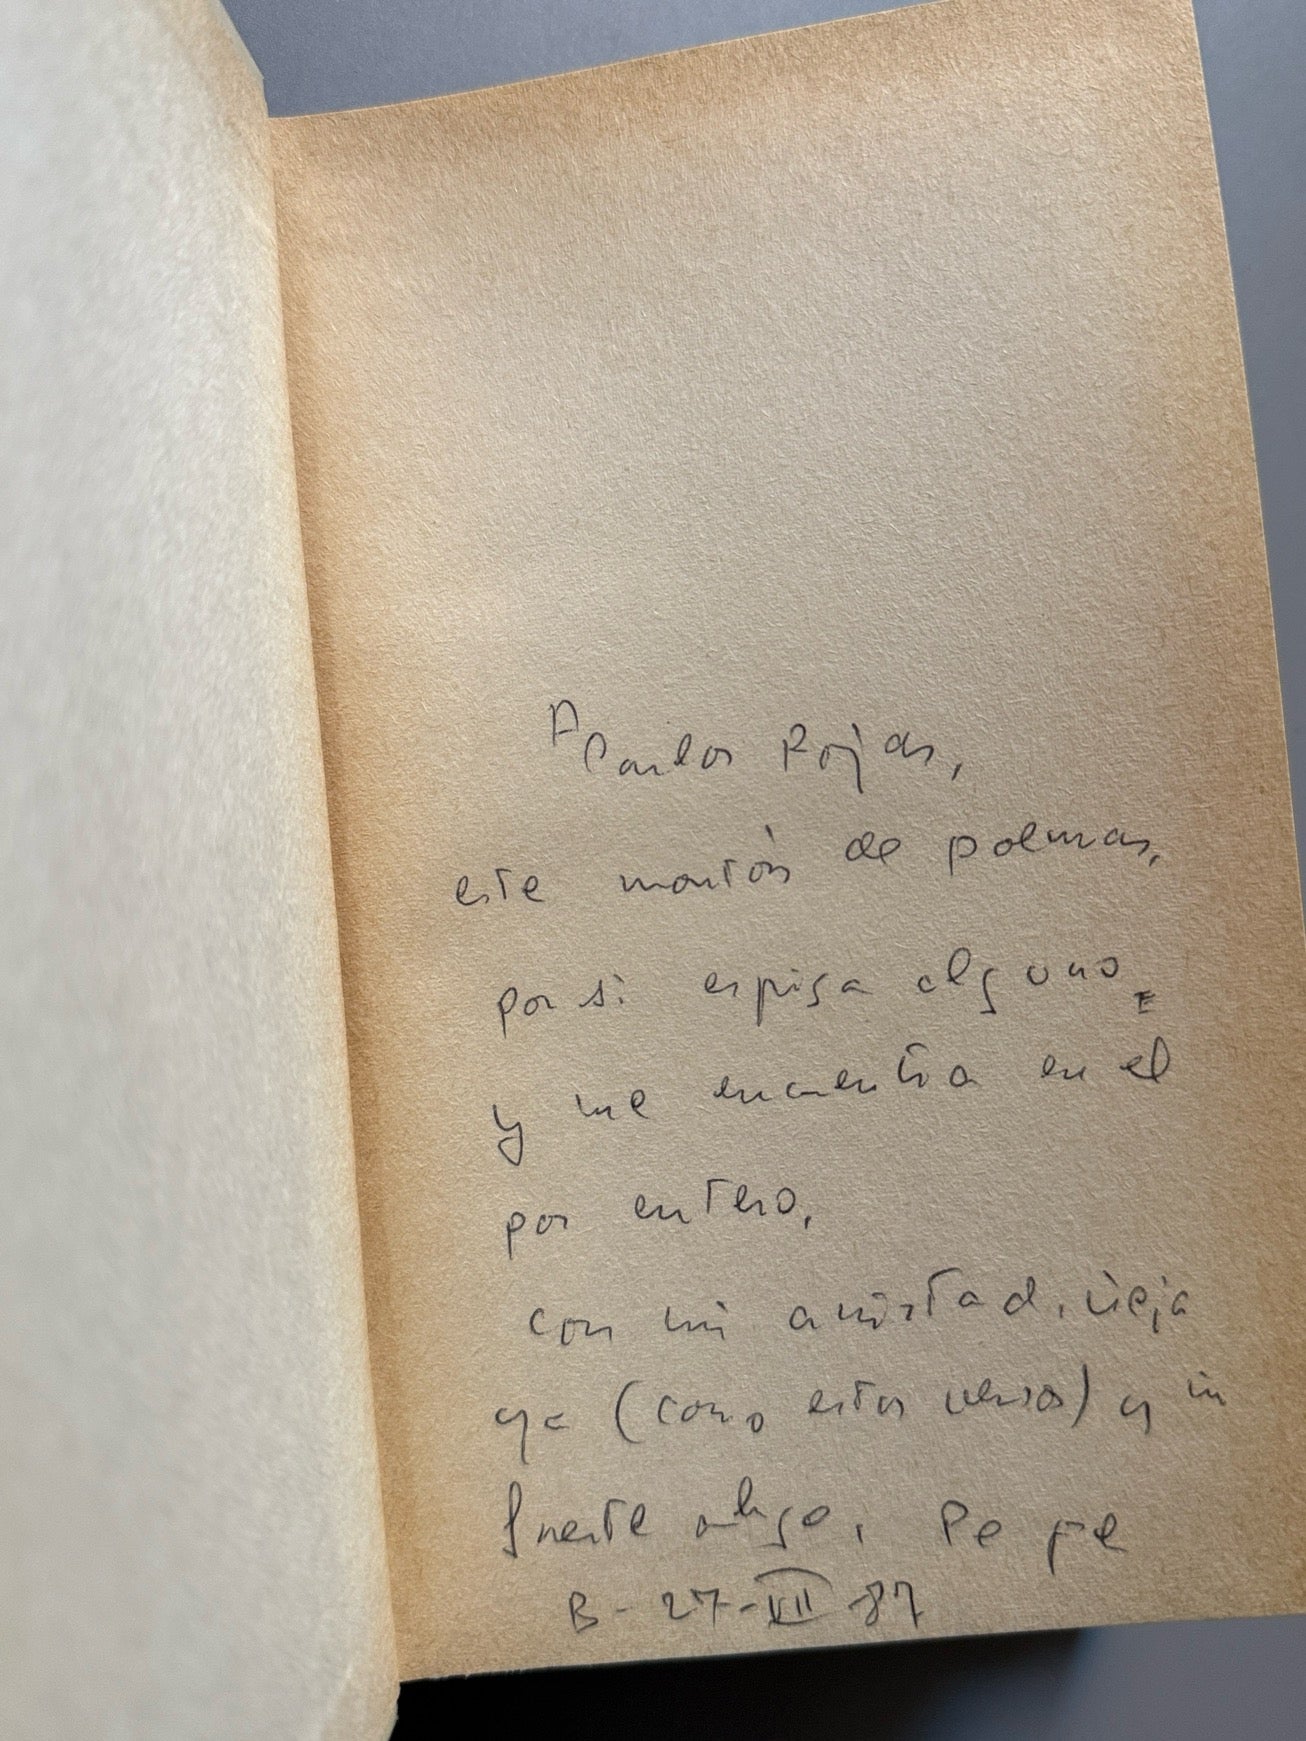 A Carlos Rojas,
este montón de poemas,
por si espiga alguno,
y me encuentra en el
por entero,
con mi amistad, vieja
ya (como estos versos) y un
fuerte abrazo, Pepe
B - 27-VII 87